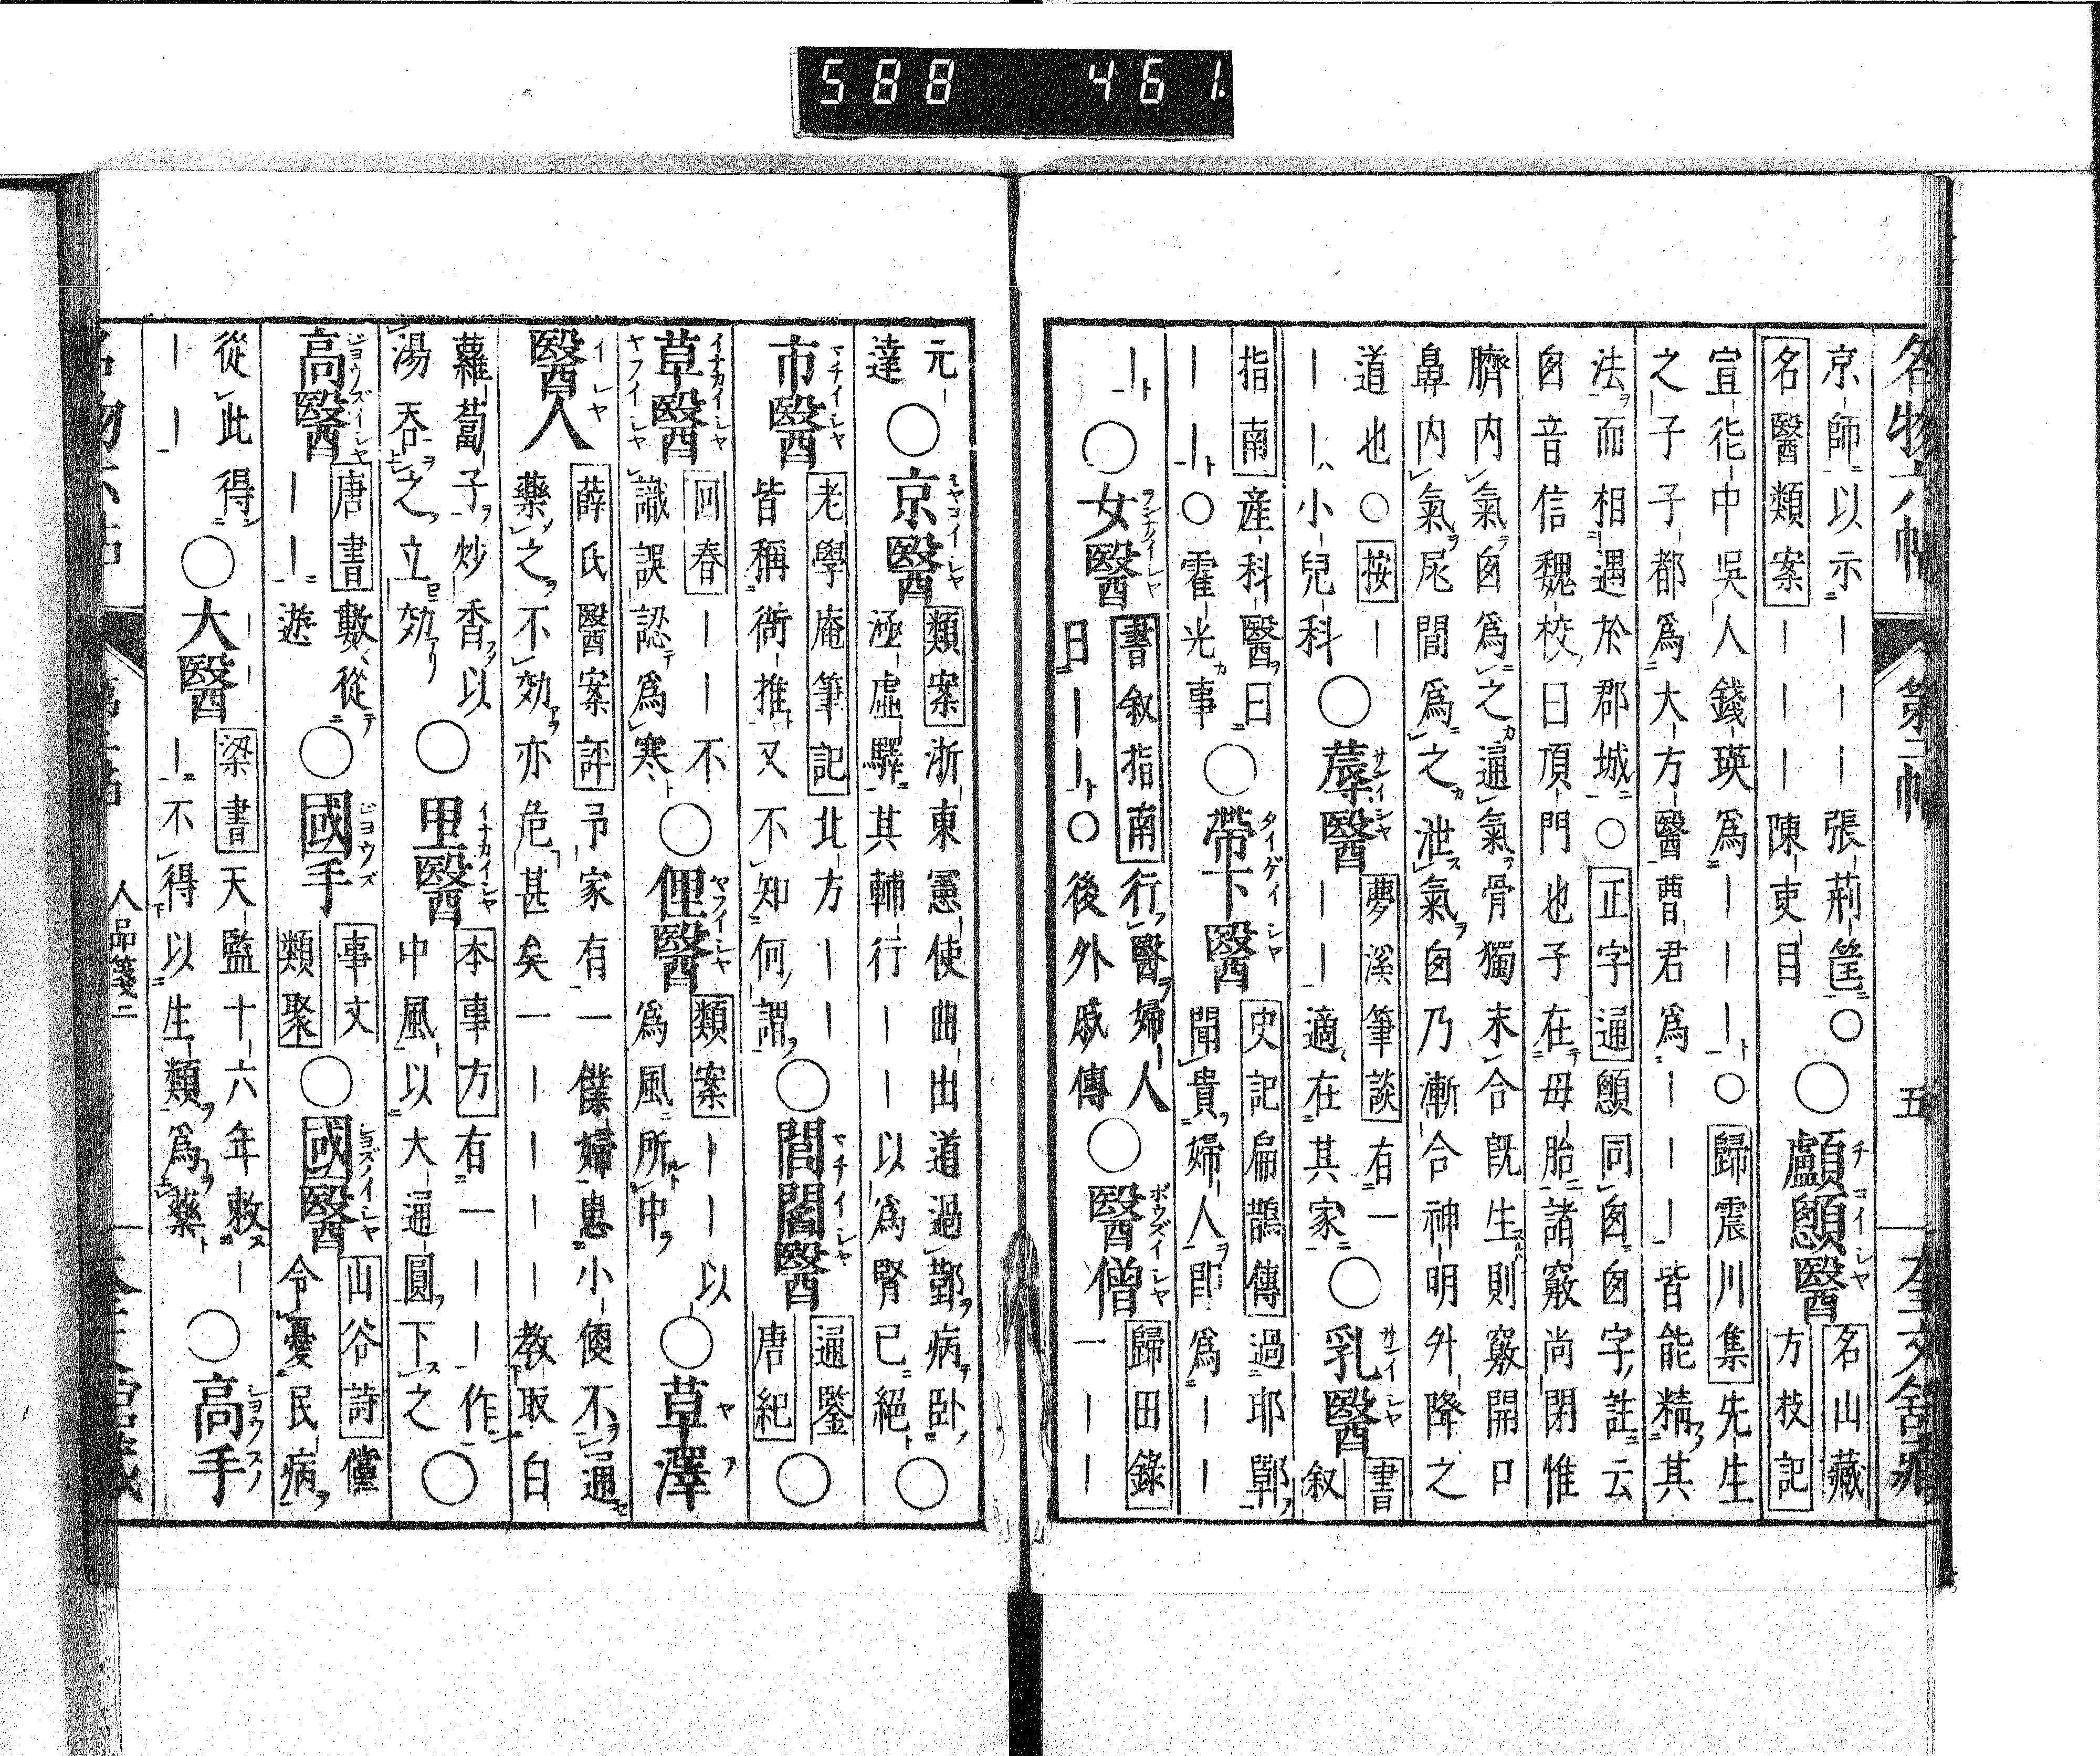 588 461.
名物六帖 第二帖 五 奎文舘藏
京師以示｜｜｜張荊筐○ ○顱顖醫 名山藏
名醫類案｜｜｜陳吏目 方枝記
宣徘中吳人錢瑛為｜｜｜○歸震川集先生
之子子都為大方醫曹君為｜｜｜皆能精其
法而相遇於郡城○正字通顖同囟囟字註云
囟音信魏校曰頂門也子在母胎諸竅尚閉惟
臍內氣囟為之通氣骨獨未合旣生則竅開口
鼻內氣尾間為之泄氣囟乃漸合神明升降之
道也○按｜ ○蓐醫 夢溪筆談有一 ○乳醫 書
｜｜小兒科 ｜｜適在其家 叙
指南産科醫曰 ○帶下醫 史記扁鵲傳過邯鄲
｜｜○霍光事 聞貴婦人即為｜｜
｜ ○女醫 書叙指南行醫婦人 ○醫僧 歸田錄
曰｜｜○後外戚傳 一｜｜
元 ○京醫 類案浙東憲使曲出道過鄞病卧 ○
達 極虛驛其輔行｜｜以為腎已絕
市醫 老學庵筆記北方｜｜ ○閭閻醫 通鑒 ○
皆稱衙推又不知何謂 唐紀
草醫 回春｜｜不 ○俚醫 類案｜｜以 ○草澤
識誤認為寒 為風所中
醫人 薛氏醫案評予家有一僕婦患小便不通
藥之不効亦危甚矣一｜｜｜｜教取白
蘿蔔子炒香以 ○里醫 本事方有一｜｜作 ○
湯吞之立効 中風以大通圓下之
高醫 唐書數從 ○國手 事文 ○國醫 山谷詩儻
｜｜遊 類聚 令憂民病
從此得｜｜ ○大醫 梁書天監十六年敕｜ ○高手
｜｜ ｜不得以生類為藥
人品箋二